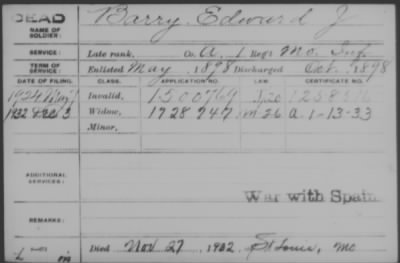 DEAD Barry, Edward J.
NAME OF SOLDIER:
SERVICE: Late rank, Co. A, 1 Reg't Mo. Inf.
TERM OF SERVICE: Enlisted May, 1898 Discharged Oct. 1898
DATE OF FILING. CLASS. APPLICATION NO. LAW. CERTIFICATE NO.
1924 Invalid, 1500769
1932 Dec 3 Widow, 1728747 m 26 a. 1-13-33
Minor,
ADDITIONAL SERVICES:
War with Spain
REMARKS:
Died Nov 27, 1932, St Louis, Mo